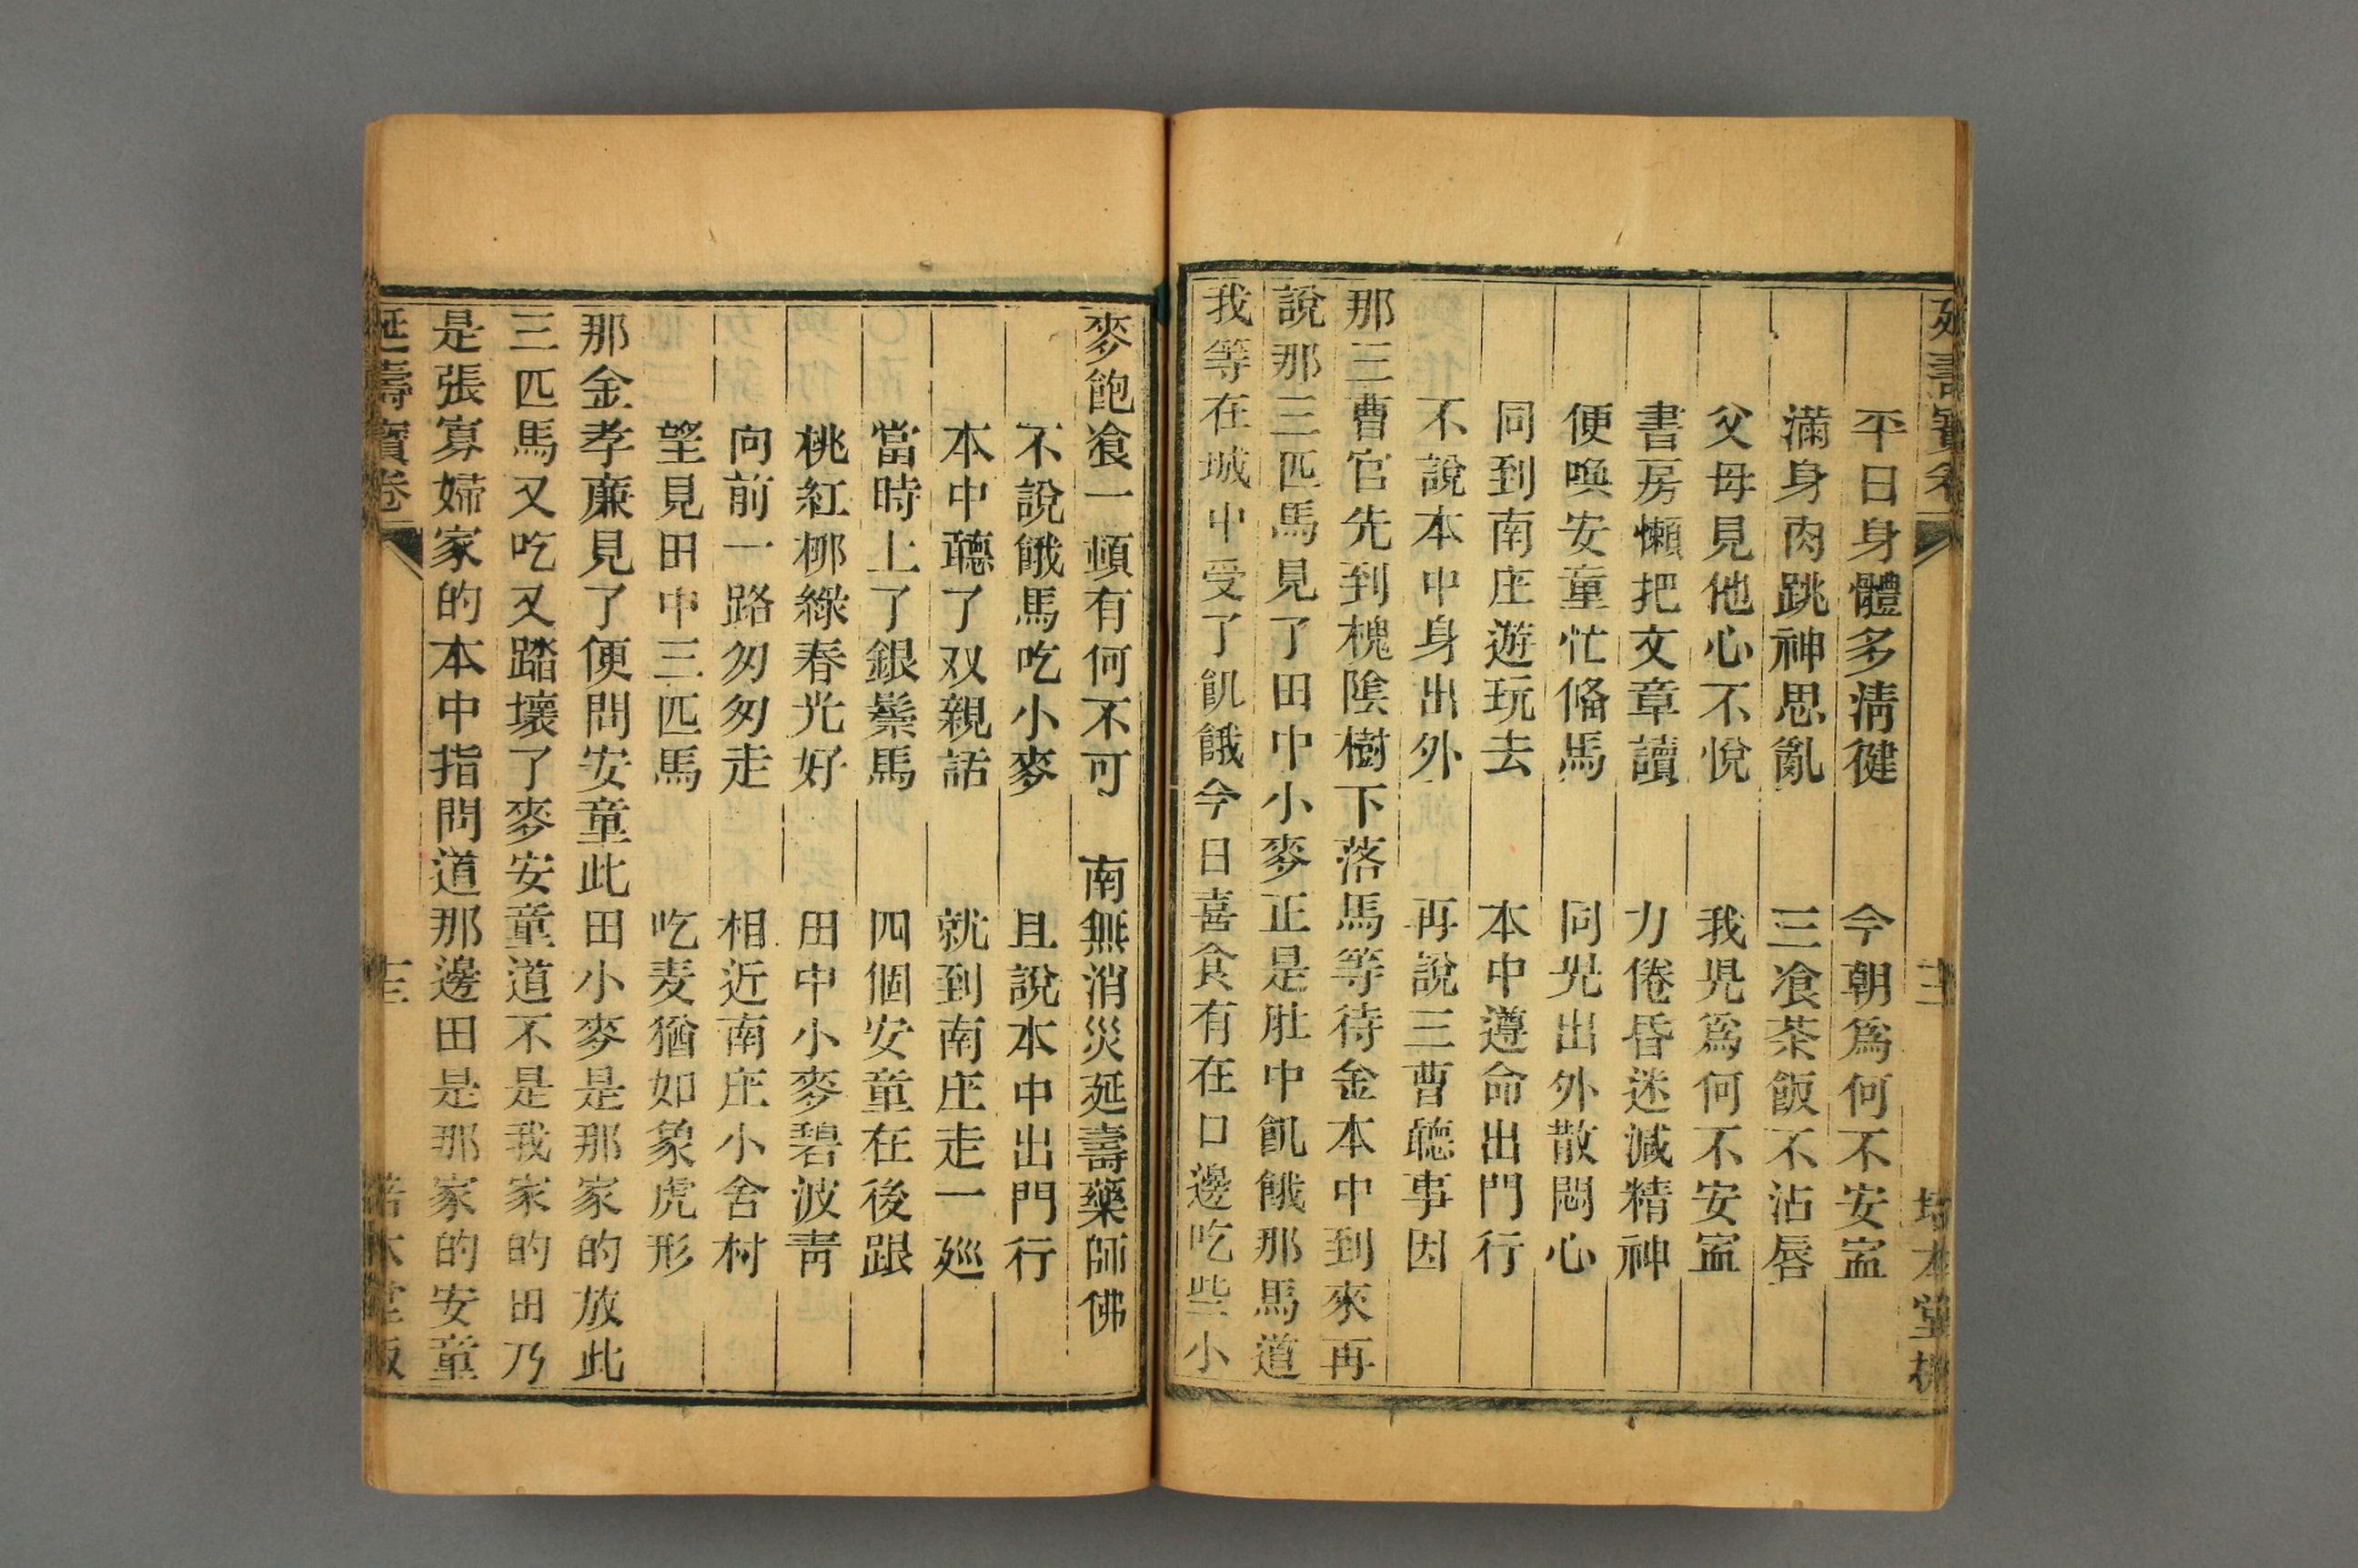 延壽寶卷 十二 培本堂板
平日身體多淸健 今朝爲何不安寍
滿身肉跳神思亂 三飡茶飯不沾唇
父母見他心不悅 我児爲何不安寍
書房懶把文章讀 力倦昏迷減精神
便喚安童忙俻馬 同児出外散悶心
同到南庄遊玩去 本中遵命出門行
不說本中身出外 再說三曹聽事因
那三曹官先到槐陰樹下落馬等待金本中到來再
說那三匹馬見了田中小麥正是肚中飢餓那馬道
我等在城中受了飢餓今日喜食有在口邊吃些小
麥飽飡一頓有何不可 南無消災延壽藥師佛
不說餓馬吃小麥 且說本中出門行
本中聽了双親話 就到南庄走一廵
當時上了銀鬃馬 四個安童在後跟
桃紅柳綠春光好 田中小麥碧波靑
向前一路匆匆走 相近南庄小舍村
望見田中三匹馬 吃麦猶如象虎形
那金孝亷見了便問安童此田小麥是那家的放此
三匹馬又吃又踏壞了麥安童道不是我家的田乃
是張寡婦家的本中指問道那邊田是那家的安童
延壽寶卷 十三 培本堂板